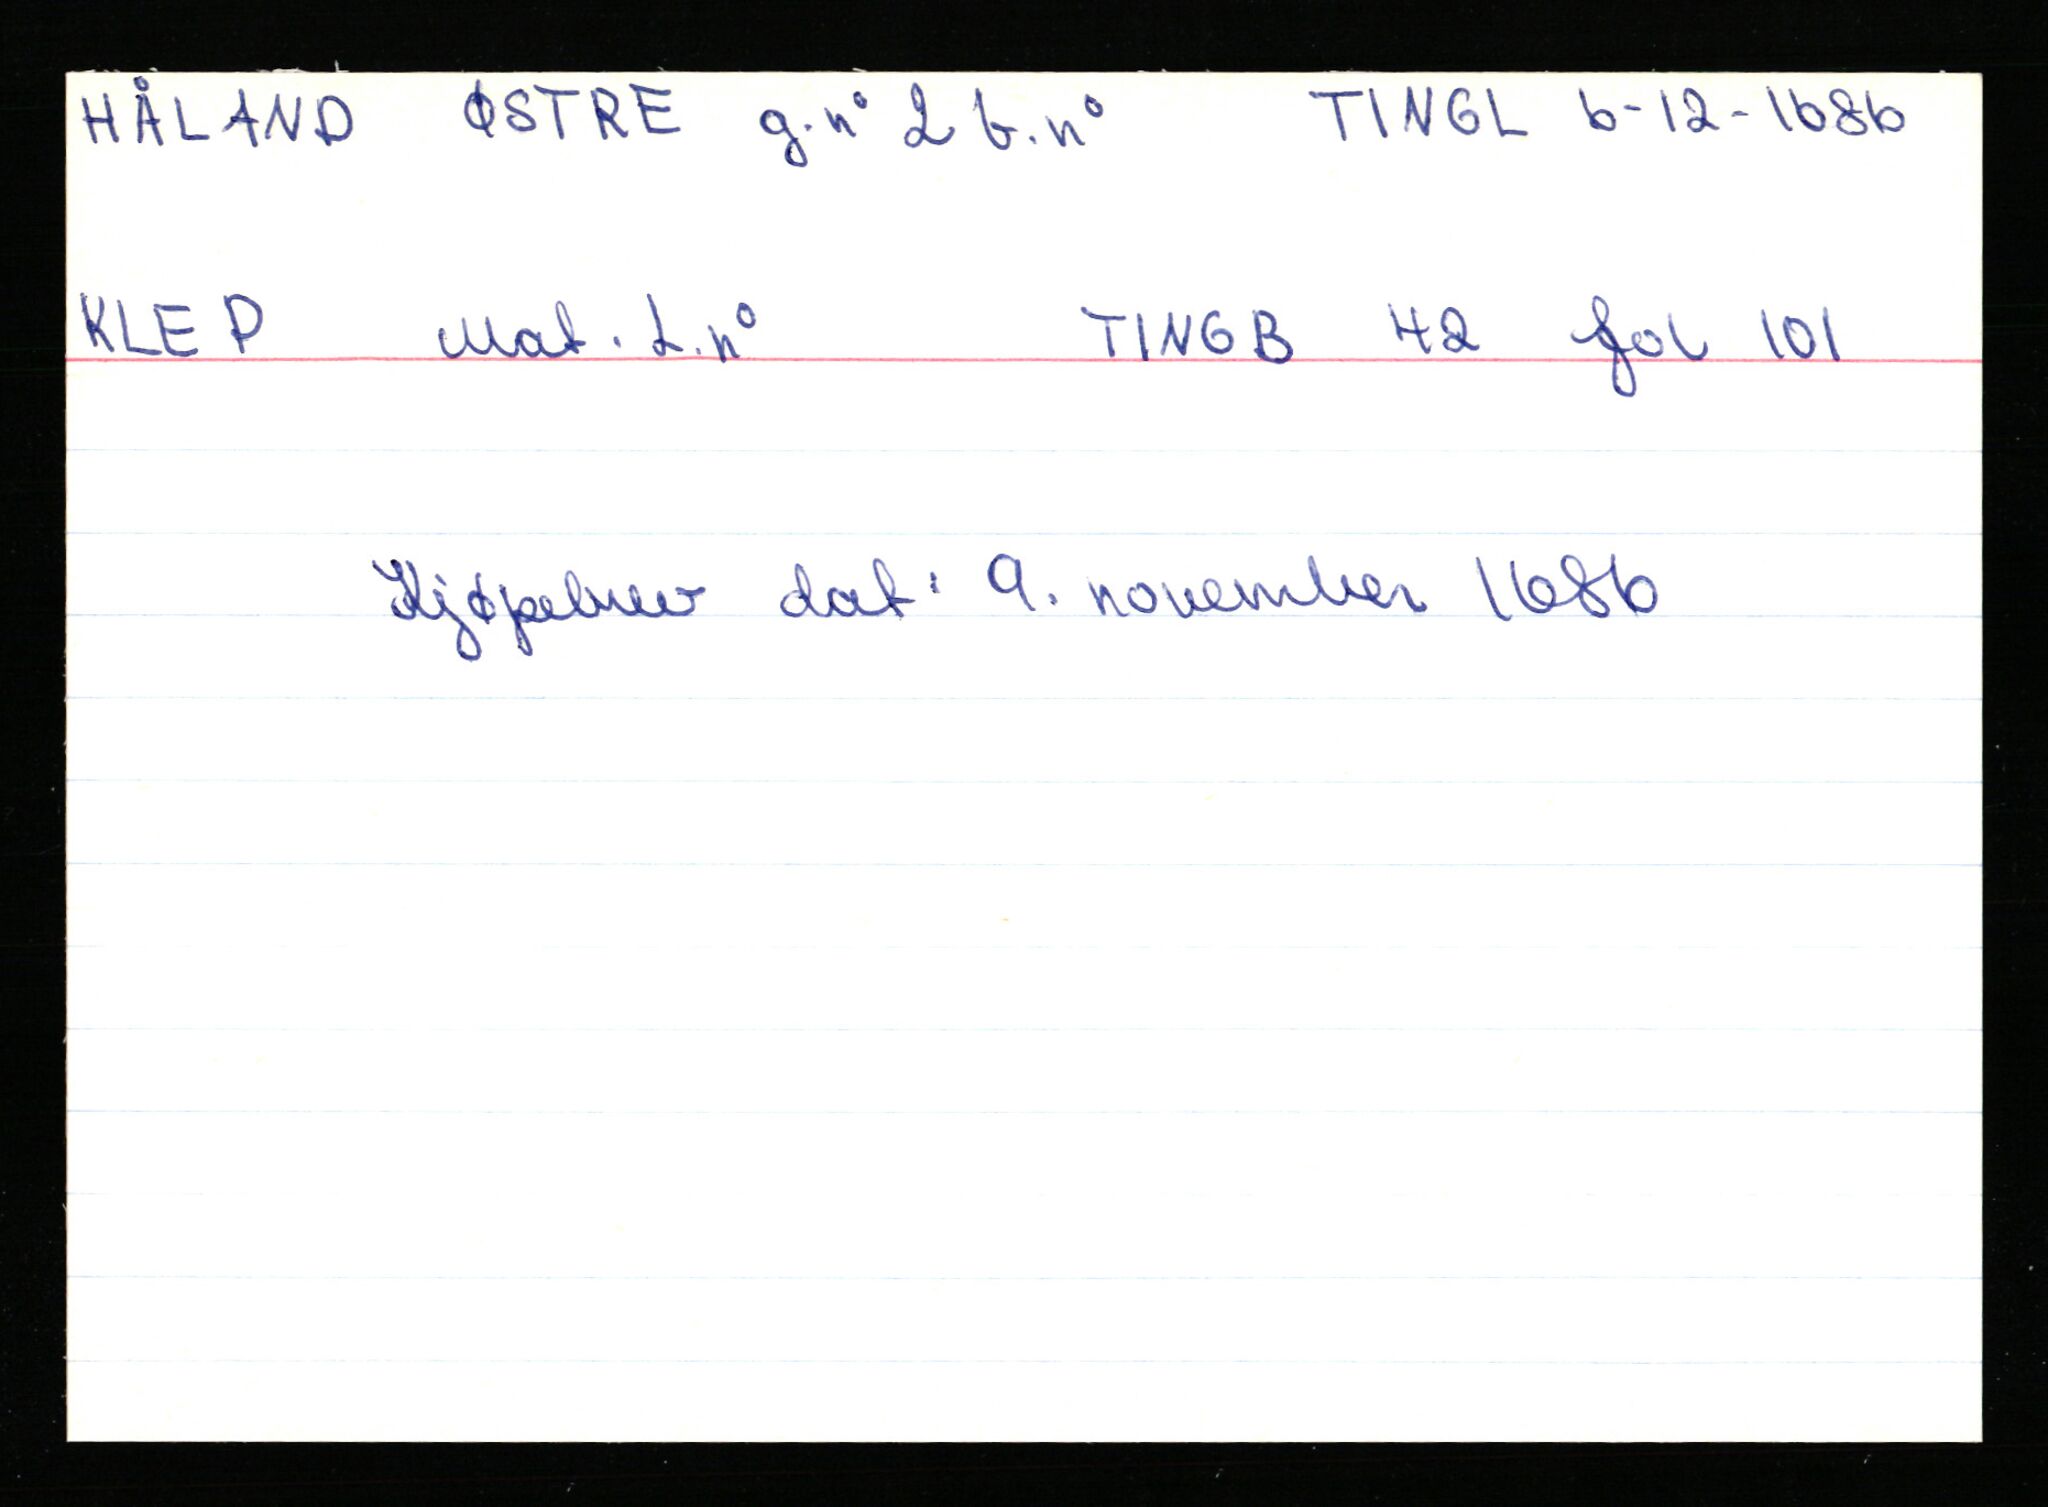 HÅLAND ØSTRE g.n° 2 b.n° TINGL 6-12-1686
KLEP Mat. L.n° TINGB 42 fol 101
Kjøpebrev dat: 9. november 1686